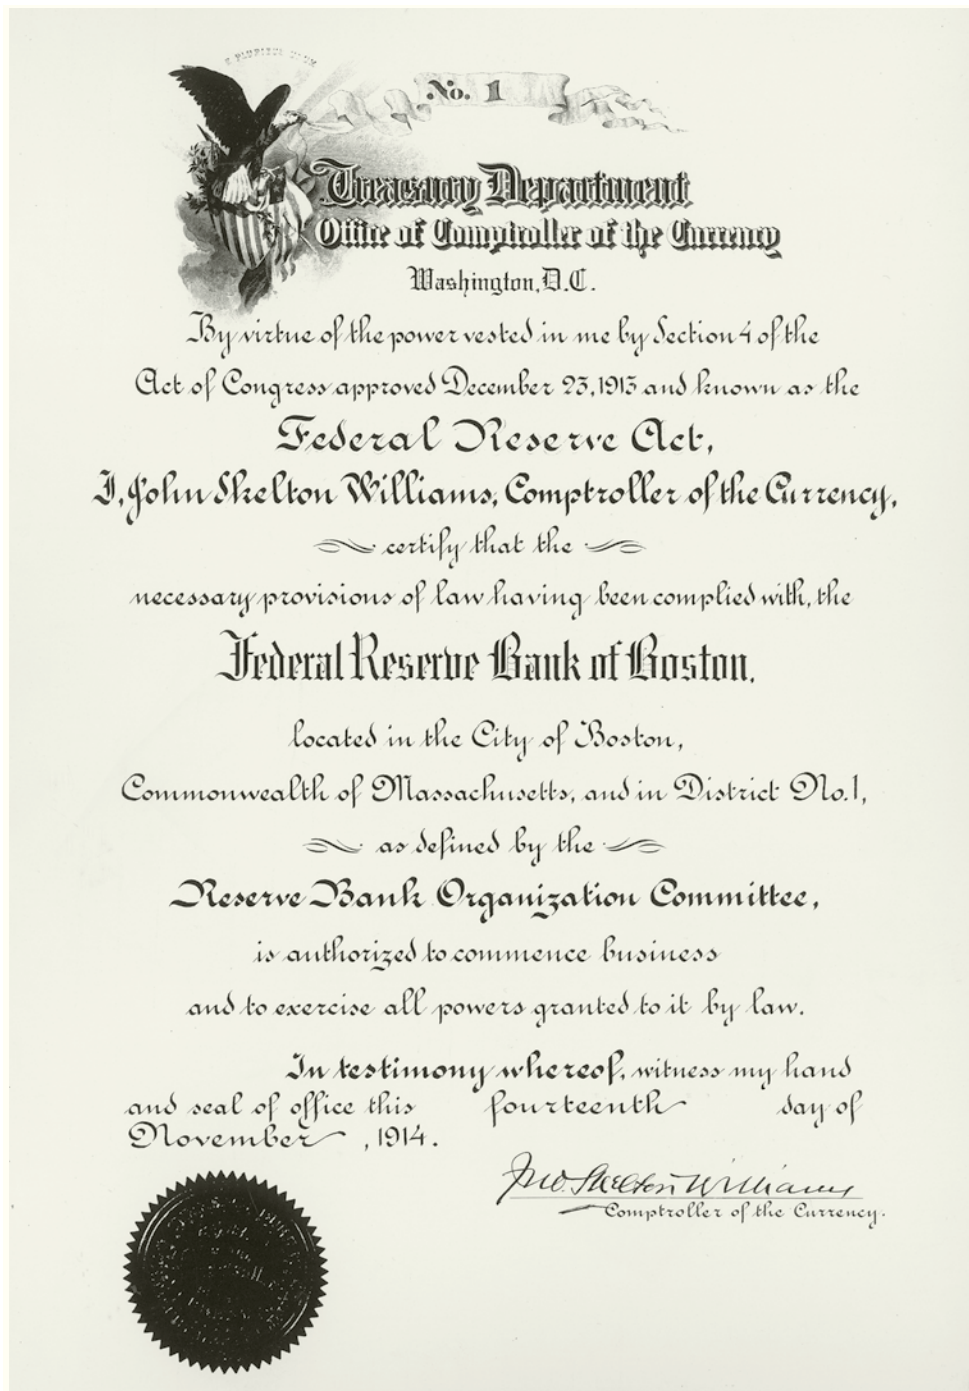 E PLURIBUS UNUM
No. 1
Treasury Department
Office of Comptroller of the Currency
Washington, D.C.
By virtue of the power vested in me by Section 4 of the
Act of Congress approved December 23, 1913 and known as the
Federal Reserve Act,
I, John Skelton Williams, Comptroller of the Currency,
certify that the
necessary provisions of law having been complied with, the
Federal Reserve Bank of Boston,
located in the City of Boston,
Commonwealth of Massachusetts, and in District No. 1,
as defined by the
Reserve Bank Organization Committee,
is authorized to commence business
and to exercise all powers granted to it by law.
In testimony whereof, witness my hand
and seal of office this fourteenth day of
November, 1914.
Jno. Skelton Williams
Comptroller of the Currency.